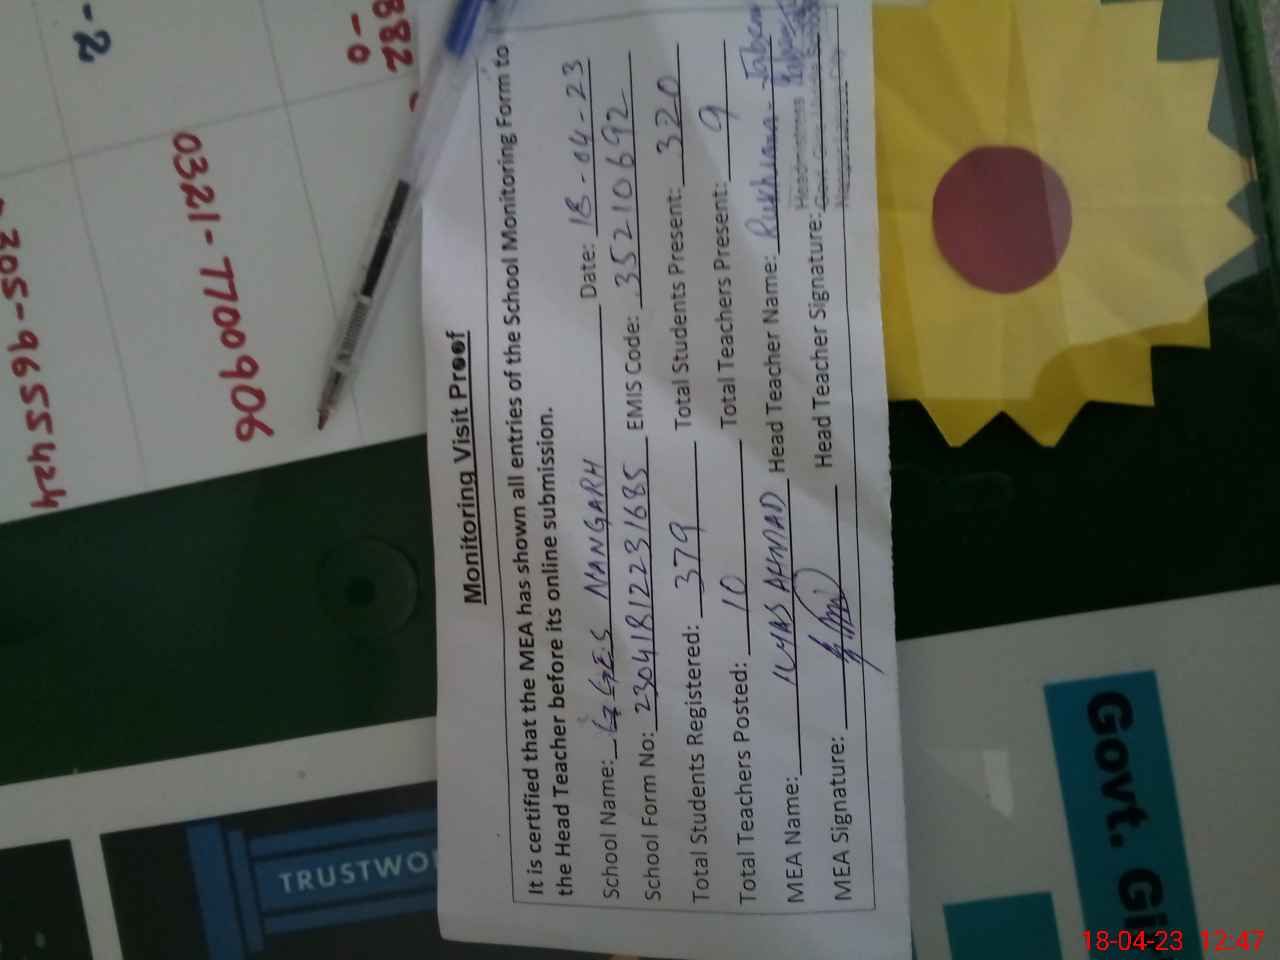 Monitoring Visit Proof
It is certified that the MEA has shown all entries of the School Monitoring Form to
the Head Teacher before its online submission.
School Name: GGES NANGARH Date: 18-04-23
School Form No: 230418122231685 EMIS Code: 35210692
Total Students Registered: 379 Total Students Present: 320
Total Teachers Posted: 10 Total Teachers Present: 9
MEA Name: ILYAS AHMAD Head Teacher Name: Rukhsana
MEA Signature: Head Teacher Signature:
Headmistress
-2
882
-0
0321-7700906
305-9655424
TRUSTWO
Govt. Gi
18-04-23 12:47